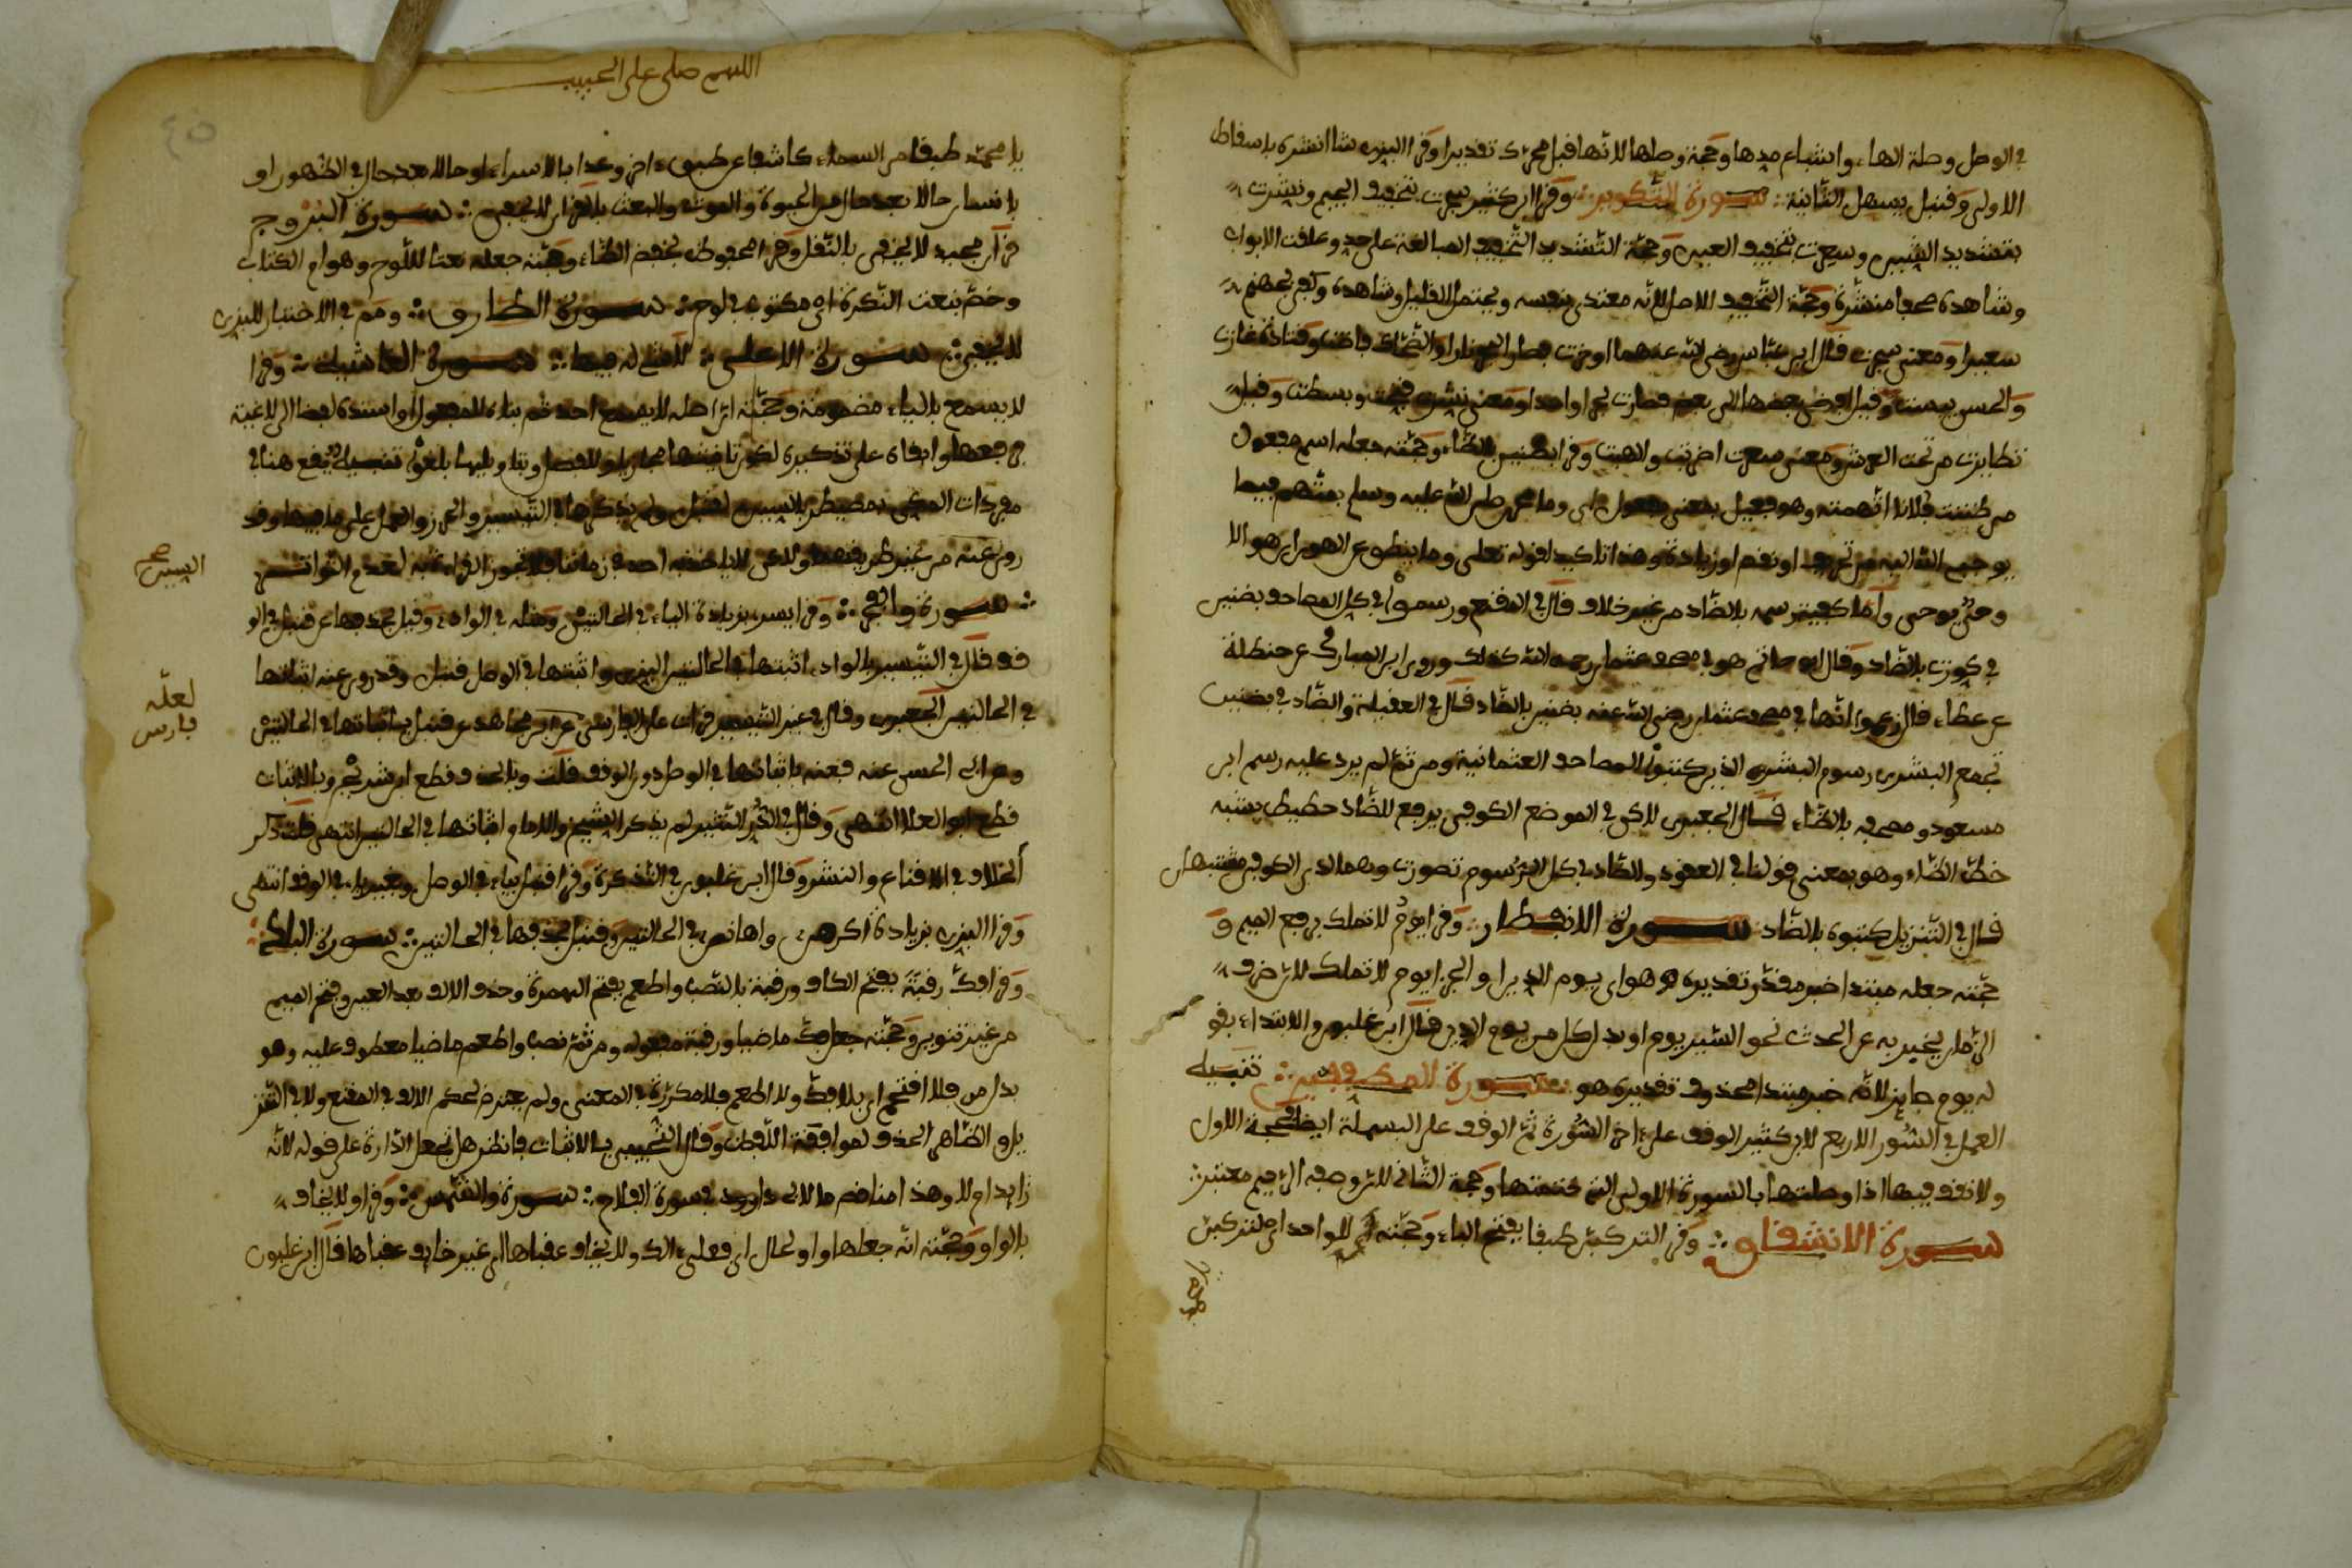 في الوصل وصلة الهاء واشباع مدها وحجة وصلها لانها قبل محرك تقديرا وقرا البزي شا انشره باسقاط
الاولى وقنبل يسهل الثانية سورة التكوير وقرا ابن كثير سجرت بتخفيف الجيم ونشرت
بتشديد الشين وسعرت بتخفيف العين وحجة التشديد التخفيف المبالغة على حد وغلقت الابواب
وشاهده صحفا منشرة وحجة التخفيف الاصل لانه معتدى بنفسه ويحتمل القليل وشاهده وكفى بجهنم
سعيرا ومعنى سجرت قال ابن عباس رضي الله عنهما اوقدت فصارت نارا والضحاك فاضت وقتادة غارت
والحسن يبست وقيل افضى بعضها الى بعض فصارت بحرا واحدا ومعنى نشرت فتحت وبسطت وقيل
تطايرت من تحت العرش ومعنى سعرت اضرمت والهبت وقرا بظنين بالظاء وحجته جعله اسم مفعول
من ظننت فلانا اتهمته وهو فعيل بمعنى مفعول اي وما محمد صلى الله عليه وسلم بمتهم فيما
يوحيه الله اليه من تحريف او نقص او زيادة وهذا تاكيد لقوله تعلى وما ينطق عن الهوى ان هو الا
وحي يوحى واما كيفية رسمه بالضاد من غير خلاف قال في المقنع ورسموا في كل المصاحف بضنين
في كورت بالضاد وقال ابو حاتم هو في مصحف عثمان رحمه الله كذلك وروى ابن المبارك عن حنظلة
عن عطاء قال زعموا انها في مصحف عثمان رضي الله عنه بضنين بالضاد قال في العقيلة والضاد في بضنين
تجمع البشرى رسوم البشرى الذين كتبوا المصاحف العثمانية ومن ثم لم يرد عليه رسم ابن
مسعود ومصحفه بالظاء قال الجعبري لكن في الموضع الكوفي يرفع للضاد خطيط يشبه
خط الظاء وهو بمعنى قولنا في العقود والضاد في كل الرسوم تصورت وهما لدى الكوفي مشتبهان
قال في التنزيل كتبوه بالضاد سورة الانفطار وقرا يوم لا تملك برفع الميم و
حجته جعله مبتدا خبر مقدر تقديره هو هواى يوم الدين او الجزا يوم لا تملك لان ظرف
الزمان يخبر به عن الحدث نحو السير يوم او بدل كل من يوم الدين قال ابن غلبون والابتداء بقو
له يوم جايز لانه خبر مبتدا محذوف تقديره هو سورة المطففين تنبيه
العمل في السور الاربع لابن كثير الوقف على اخر السورة ثم الوقف على البسملة ايضا فحجة الاول
ولا تقف فيها اذا وصلتها بالسورة الاولى التي ختمتها وحجة الثاني للروضة الرحيم معتبر
سورة الانشقاق وقرا لتركبن طبقا بفتح الباء وحجته للواحد اي لتركبن
يامحمد
اللهم صلى على الحبيب
٤٥
يا محمد طبقا من السماء كاشفا عن طبق اخر وعدا بالاسراء او حالا بعد حال في الظهور او
يا نسان حالا بعد حال من الحيوة والموت والبعث سورة البروج
قران مجيد لا يخفى بالنقل وقرا محفوظ بخفض الظاء وحجته جعله نعتا للوح وهو ام الكتاب
وخص بنعت النكرة اي مكتوب في لوح سورة الطارق ومم في الاختبار للبزي
لا يخفى سورة الاعلى لا فتح له فيها سورة الغاشية وقرا
لا يسمع بالياء مضمومة وحجته ان اصله لا يسمع احد ثم بناه للمفعول واسنده لفظا الى لاغية
فرفعها وابقاه على تذكيره لكون تانيثها مجازيا وللفصل وبتاويلها بلغو تنبيه يقع هنا في
مفردات المكي بمصيطر بالسين لقنبل ولم يذكرها التيسير والحرز والعمل على ما فيها وقد
روي عنه من غير طريقهما ولكن لا ياخذ به احد في زماننا فلا تجوز القراءة به لعدم التواتر
سورة والفجر وقرا يسر بزيادة الياء في الحالتين ومثله في الواد وقيل بحذفها عن قنبل في الو
قف قال في التيسير بالواد اثبتها في الحالتين البزي واثبتها في الوصل قنبل وقد روي عنه اثباتها
في الحالتين الجعبري وقال في غير التيسير قرات على الفارسي عن ابن مجاهد عن قنبل باثباتها في الحالتين
وعن ابي الحسن عنه فعنه باثباتها في الوصل دون الوقف قلت وبالحذف قطع ابن شريح وبالاثبات
قطع ابو العلا انتهى وقال في الدر النثير لم يذكر الشيخ والامام اثباتها في الحالتين انتهى قلت ذكر
الخلاف في الاقناع والنشر وقال ابن غلبون في التذكرة وقرا قنبل بياء في الوصل وبغير ياء في الوقف انتهى
وقرا البزي بزيادة اكرمن واهانن في الحالتين وقنبل بحذفها في الحالتين سورة البلد
وقرا فك رقبة بفتح الكاف ورقبة بالنصب واطعم بفتح الهمزة وحذف الالف بعد العين وفتح الميم
من غير تنوين وحجته جعل فك ماضيا ورقبة مفعوله ومن ثم نصب واطعم ماضيا معطوف عليه وهو
بدل من فلا اقتحم اي بلا فك ولا اطعم فلا مكررة في المعنى ولم يتعرض لحكم الالف في المقنع ولا في التنز
يل والظاهر الحذف لموافقة اللفظ وقال الشيخ بالاثبات فانظر هل تجعل الدارة على قوله لانه
زايد ام لا وهذا مناقض ما لابي داود في سورة الفلاح سورة والشمس وقرا ولا يخاف
بالواو وحجته انه جعلها واو الحال اي فعل ذلك ولا يخاف عقباها اي غير خايف عقباها قال ابن غلبون
السين صح
لعله
بارس